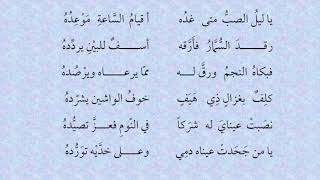 يا ليلُ الصبُّ متى غدُه أقيامُ السَّاعةِ مَوْعِدُهُ
رقدَ السُّمَّارُ فأرَّقه أسفٌ للبَيْنِ يردِّدهُ
فبكاهُ النجمُ ورقَّ له ممّا يرعاه ويرْصُدُهُ
كلِفٌ بغزالٍ ذي هَيَفٍ خوفُ الواشين يشرّدهُ
نصَبتْ عينايَ له شرَكاً في النّومِ فعزَّ تصيُّدهُ
يا من جَحَدتْ عيناه دمِي وعلى خدَّيْه تورُّدهُ